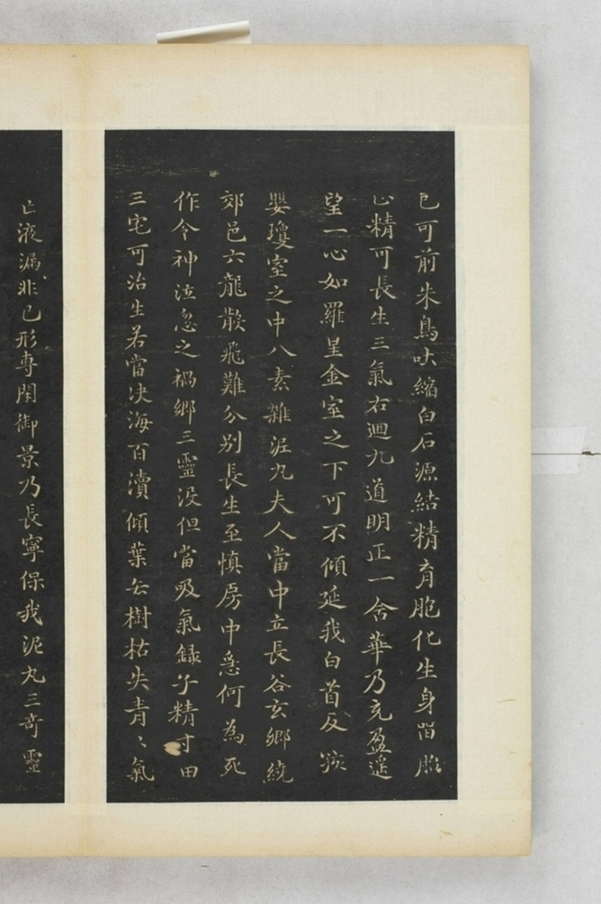 可前朱鳥吐縮白石源結精育胞化生身留胎
精可長生三氣右迴九道明正一含華乃充盈遥
望一心如羅星金室之下可不傾延我白首反孩
嬰瓊室之中八素雜泥丸夫人當中立長谷玄鄉繞
郊邑六龍散飛難分別長生至慎房中急何為死
作令神泣忽之禍鄉三靈没但當吸氣録子精寸田
三宅可治生若當决海百瀆傾葉去樹枯失青〻氣
亡液漏非已形専閑御景乃長寧保我泥丸三奇靈